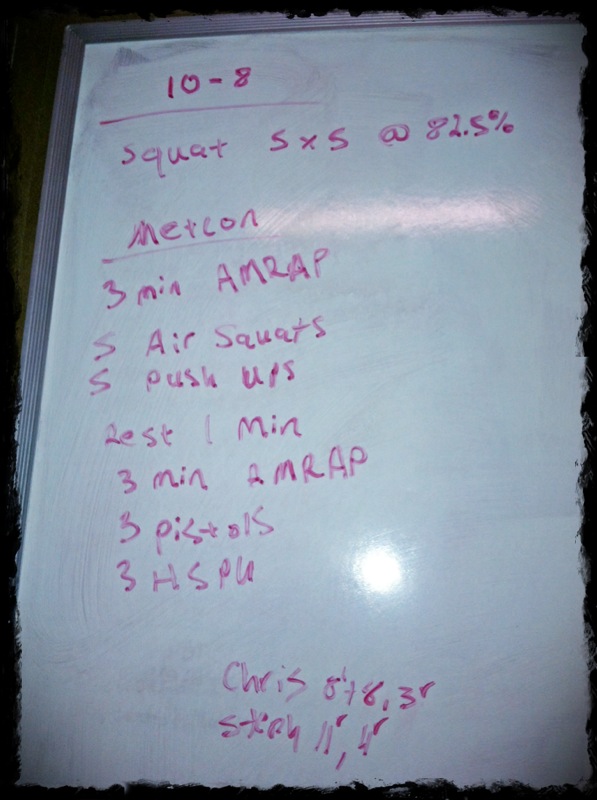 10-8
Squat 5x5 @ 82.5%
Metcon
3 min AMRAP
5 Air Squats
5 push ups
Rest 1 Min
3 min AMRAP
3 pistols
3 HSPU
Chris 8r+8, 3r
Steph 11r, 4r